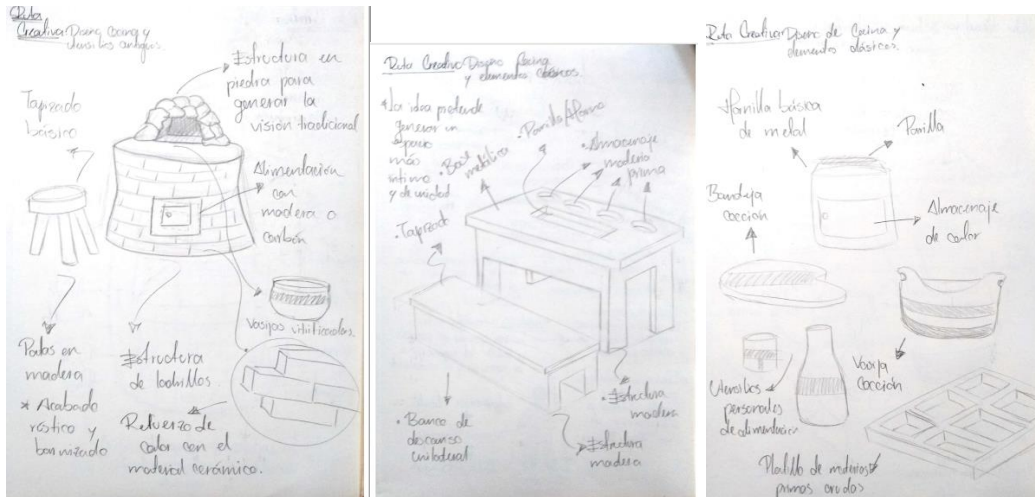 Ruta
Creativa Diseño Cocina y
utensilios antiguos.
Estructura en
piedra para
generar la
visión tradicional
Tapizado
básico
Alimentación
con
madera o
carbón
Vasijas vitrificadas.
Patas en
madera
* Acabado
rústico y
barnizado
Estructura
de ladrillos.
Refuerzo de
calor con el
material cerámico.
Ruta Creativa Diseño Cocina
y elementos clásicos.
* La idea pretende
generar un
espacio
más
íntimo
y de unidad
• Parrilla/Horno
• Almacenaje
materia
prima
metálica
• Tapizado
• Banco de
descanso
unilateral
• Estructura
madera
• Estructura
madera
Ruta Creativa Diseño de Cocina y
elementos clásicos.
Hornilla básica
de metal
Parrilla
Bandeja
cocción
Almacenaje
de calor
Vasija
cocción
Utensilios
personales
de alimentación
Platillo de materias
primas crudas